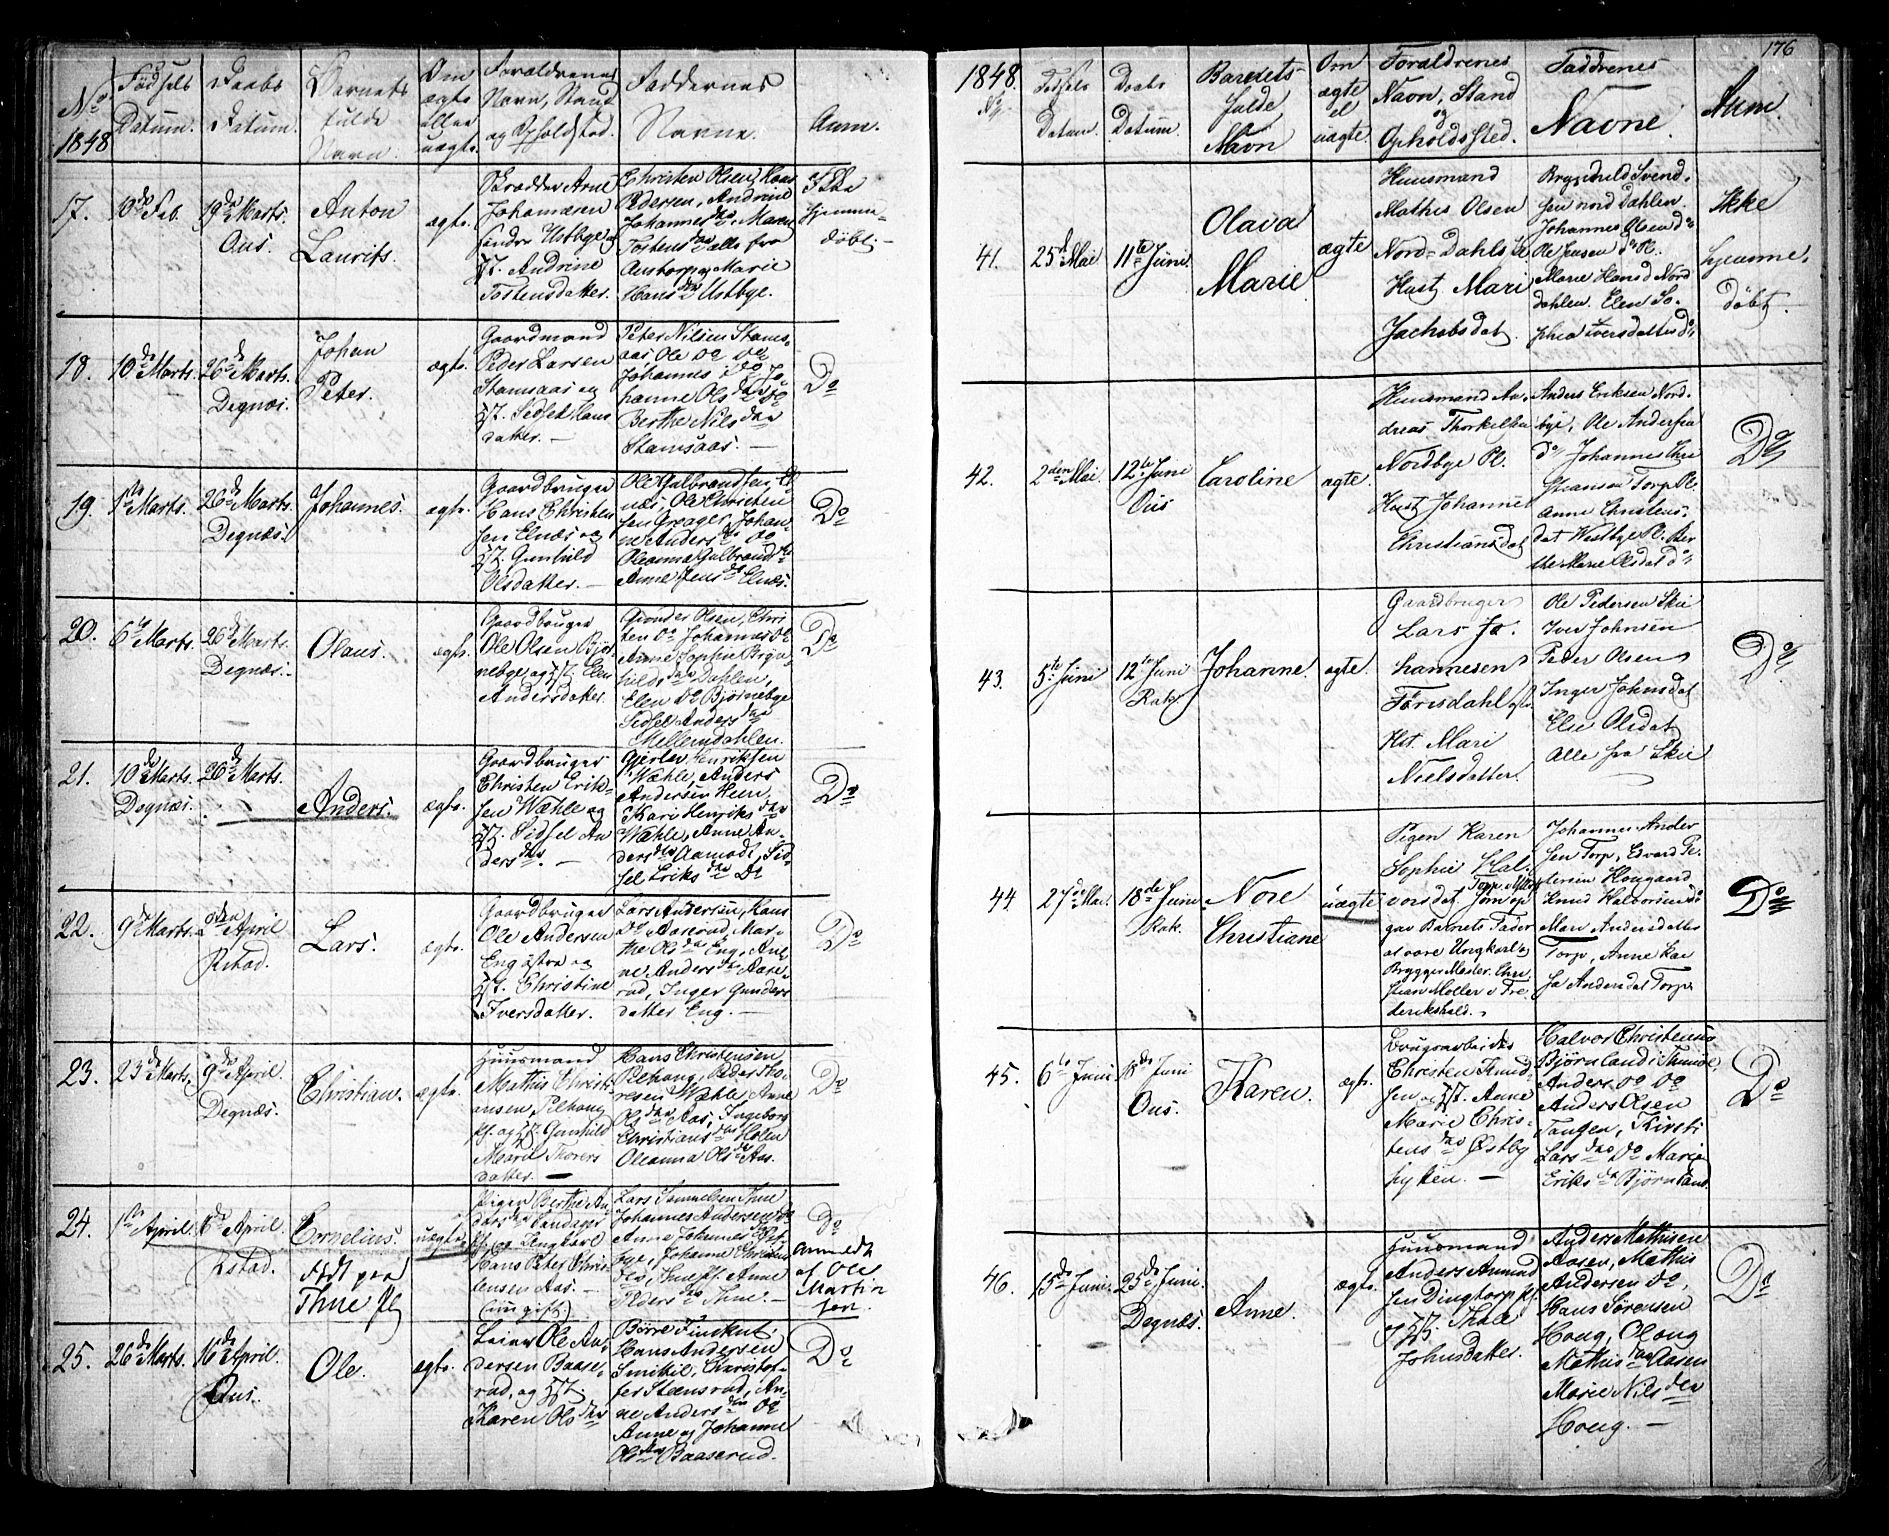 No
1848
Fødsels
Datum.
Daabs
Datum.
Barnets
fulde
Navn.
Om
ægte
eller
uægte.
Forældrenes
Navn, Stand
og Opholdsted.
Faddernes
Navne.
Anm.
17.
10de Feb.
19de Marts.
Ous.
Anton
Laurits.
ægte.
Skrædder Arne
Johannesen
søndre Ustbye og
H. Andrine
Tostensdatter.
Christen Olsen, Hans
Pedersen, Andrine
Johannesdtr, Maren
Tostensdtr alle fra
Austorp og Marie
Hansdtr Ustbye.
Ikke
hjemme-
døbt.
18.
10de Marts.
26de Marts.
Degnæs.
Johan
Peter.
ægte.
Gaardmand
Peder Larsen
Stamsaas og
H. Sidsel Hans
datter.
Peter Nilsen Stams-
aas, Ole do do
Johannes do Jo-
hanne Olsdtr do
Berthe Nilsdtr
Stamsaas.
Do
19.
1ste Marts.
26de Marts.
Degnæs.
Johannes.
ægte.
Gaardbruger
Hans Christen
sen Elnæs og
H. Gunhild
Olsdatter.
Ole Gulbrandsen El
næs, Ole Christen
sen Greager, Johan-
ne Andersdtr do
Oleanna Gulbrandsdtr
Anne Jensdtr Elnæs.
Do
20.
6te Marts.
26de Marts.
Degnæs.
Olaus.
ægte.
Gaardbruger
Ole Olsen Bjør
nebye og H. Elen
Andersdatter.
Gunder Olsen, Chri
sten do Johannes do
Anne Sophie Bryn
hildsdtr Dahlen,
Elen do Bjørnebye
Sidsel Andersdtr
Mellemdahlen.
Do
21.
10de Marts.
Degnæs.
26de Marts.
Anders.
ægte.
Gaardbruger
Christen Erik-
sen Wæhle og
H. Sidsel An
dersdtr.
Gjerløv Henriksen
Wæhle, Anders
Andersen Heen,
Kari Henriksdtr
Wæhle, Anne An-
dersdtr Aamodt, Sid-
sel Eriksdtr Do
Do
22.
9de Marts.
April
Rstad.
Lars.
ægte.
Gaardbruger
Ole Andersen
Eng østre og
H. Christine
Iversdatter.
Lars Andersen, Hans
Do Aaserud, Mar-
the Olsdtr Eng, An-
ne Andersdtr Aase-
rud, Inger Gunders
datter Eng.
Do
23.
23de Marts.
9de April.
Degnæs.
Christian.
ægte.
Huusmand
Mathis Christi
ansen, Pelhaug
pl. og H. Gunhild
Maria Thorers
datter.
Hans Christensen,
Pelhaug, Peder Tho-
resen Wæhle, Anne
Olsdtr Aas, Ingeborg
Christiansdtr Holen
Oleanna Olsdtr Aas.
Do
24.
1ste April.
April.
Rstad.
Cornelius.
Født paa
Thue pl
uægte
Pigen Berthe An
dersdtr Sandager
pl. og Ungkarl
Hans Peter Chris
tensen Aas.
(uun gift.)
Lars Samuelsen Thue
Johannes Andersen do
Anne Johannesdtr Øst
bye, Johanne Christens
dtr, Thue pl. Anne
Pedersdtr Thue.
Do
anmeldt
af Ole
Martin
sen.
25.
26de Marts.
16de April.
Ous.
Ole.
ægte.
Leier Ole An
dersen Baase-
rud, og H.
Karen Olsdtr
Børre
Hans Andersen
Smittil, Christof-
fer Steensrud, An-
ne Andersdtr do
Anne og Johanne
Olsdtr Baaserud.
Do
176
1848.
No.
Fødsels
Datum.
Daabs
Datum.
Barnets
fulde
Navn
Om
ægte
el
uægte.
Forældrenes
Navn, Stand
og
Opholdssted.
Faddrenes
Navne.
Anm.
41.
25d Mai
11te Juni.
Olava
Marie
ægte
Huusmand
Mathis Olsen
Nord-Dahls
Hust. Mari
Jachobsdat.
Brynhild Svend-
sen nord Dahlen.
Johannes Olsen do
Ole Jensen do Pl.
Marie Hansd Nord
dahlen. Elen So-
phia Iversdatter do
Ikke
hjemme-
døbt.
42.
2den Mai.
12te Juni
Ous
Caroline
ægte.
Huusmand An-
dreas Thorkelsen
Nordbye Pl.
Hust Johanne
Christiansdat
Anders Eriksen Nord-
bye, Ole Andersen
do Johannes Chri
stiansen Torp Pl.
Anne Christens-
dat Westbye Pl. Ber
the Marie Olsdat do
Do
43.
5te Juni
12te Juni
Rak.
Johanne
ægte.
Gaardbruger
Lars Jo-
hannesen
Forisdahl
Hst. Mari
Nielsdatter.
Ole Pedersen Skie
Iver Johnsen
Peder Olsen
Inger Johnsdat
Elie Olsdat
Alle fra Skie
Do
44
27de Mai.
18de Juni
Rak.
Nore
Christiane
uægte
Pigen Karen
Sophie Hal-
vorsdat Torp
Som op
gav Barnets Fader
at være Ungkarl og
Brygger Mester Chri
stian Møller i Fre
derikshald.
Johannes Ander
sen Torp, Edvard Pe-
tersen Hougaard
Knud Halvorsen do
Mari Andersdatter
Torp, Anne Kai
sa Andersdat Torp.
Do
45.
6te Juni
18de Juni
Ous.
Karen.
ægt.
Brugsarbeider
Christen Knud
sen og H. Anne
Marie Chris-
tensdtr Østby
hytten.
Halvor Christensen
Bjørnland i
Anders do do
Anders Olsen
Tangen, Kirsti
Larsdtr do Marie
Eriksdtr Bjørnland.
Do
46.
15de Juni.
25de Juni.
Degnæs.
Anne.
ægte.
Huusmand
Anders Amund
sen Dingtorp pl.
og H. Thale
Johnsdatter.
Anders Mathisen
Aasen, Mathis
Andersen do,
Hans Sørensen
Houg, Oloug
Mathisdtr Aasen
Marie Nilsdtr
Houg.
Do